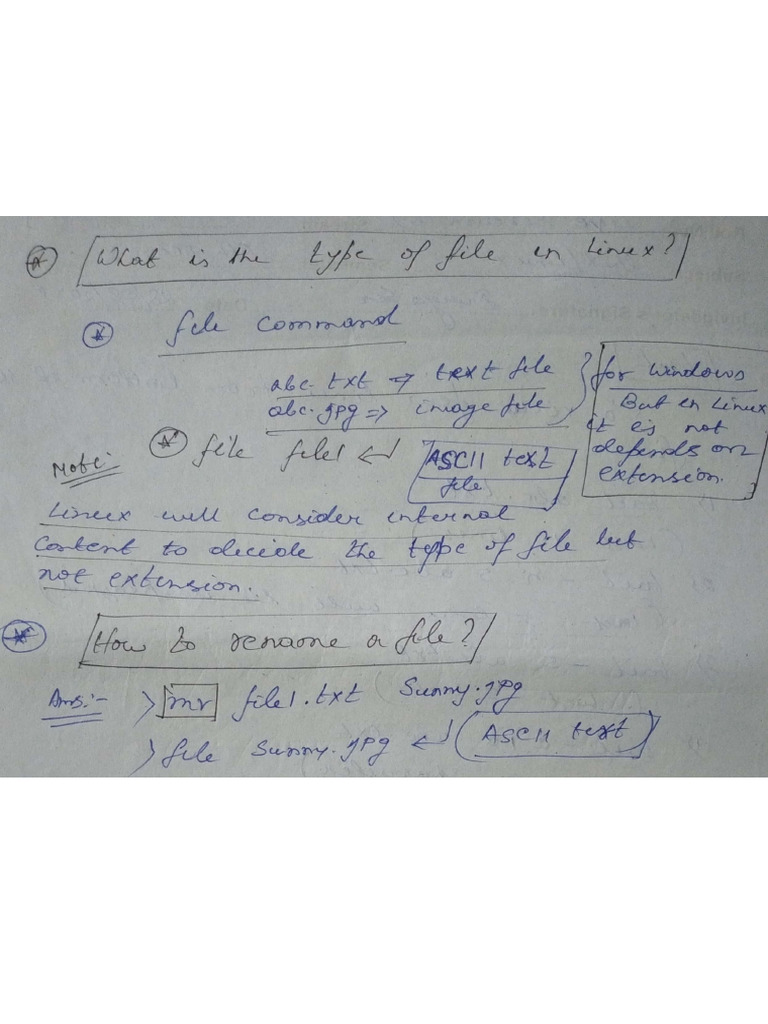 What is the type of file in Linux?
file command
abc.txt => text file
abc.jpg => image file
for windows
But in Linux
it is not
depends on
extension.
file file1 ↵
ASCII text
file
Note:-
Linux will consider internal
Content to decide the type of file but
not extension.
How to rename a file?
Ans:- > mv file1.txt Sunny.jpg
> file Sunny.jpg ↵ ASCII text